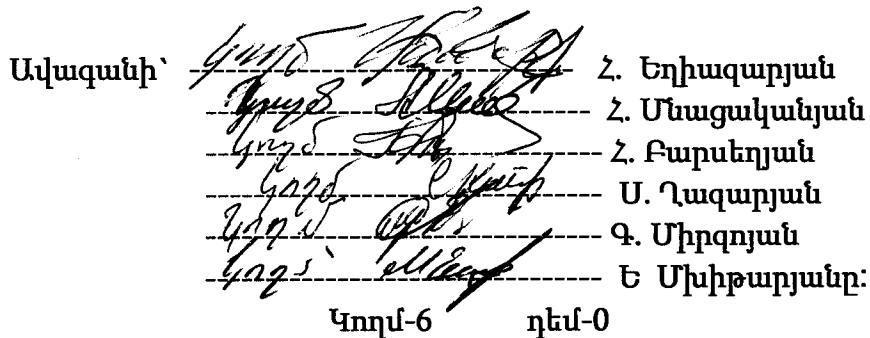 Ավագանի՝ կողմ Հ. Եղիազարյան
կողմ Հ. Մնացականյան
կողմ Հ. Բարսեղյան
կողմ Ս. Ղազարյան
կողմ Գ. Միրզոյան
կողմ Ե Մխիթարյանը:
Կողմ-6 դեմ-0